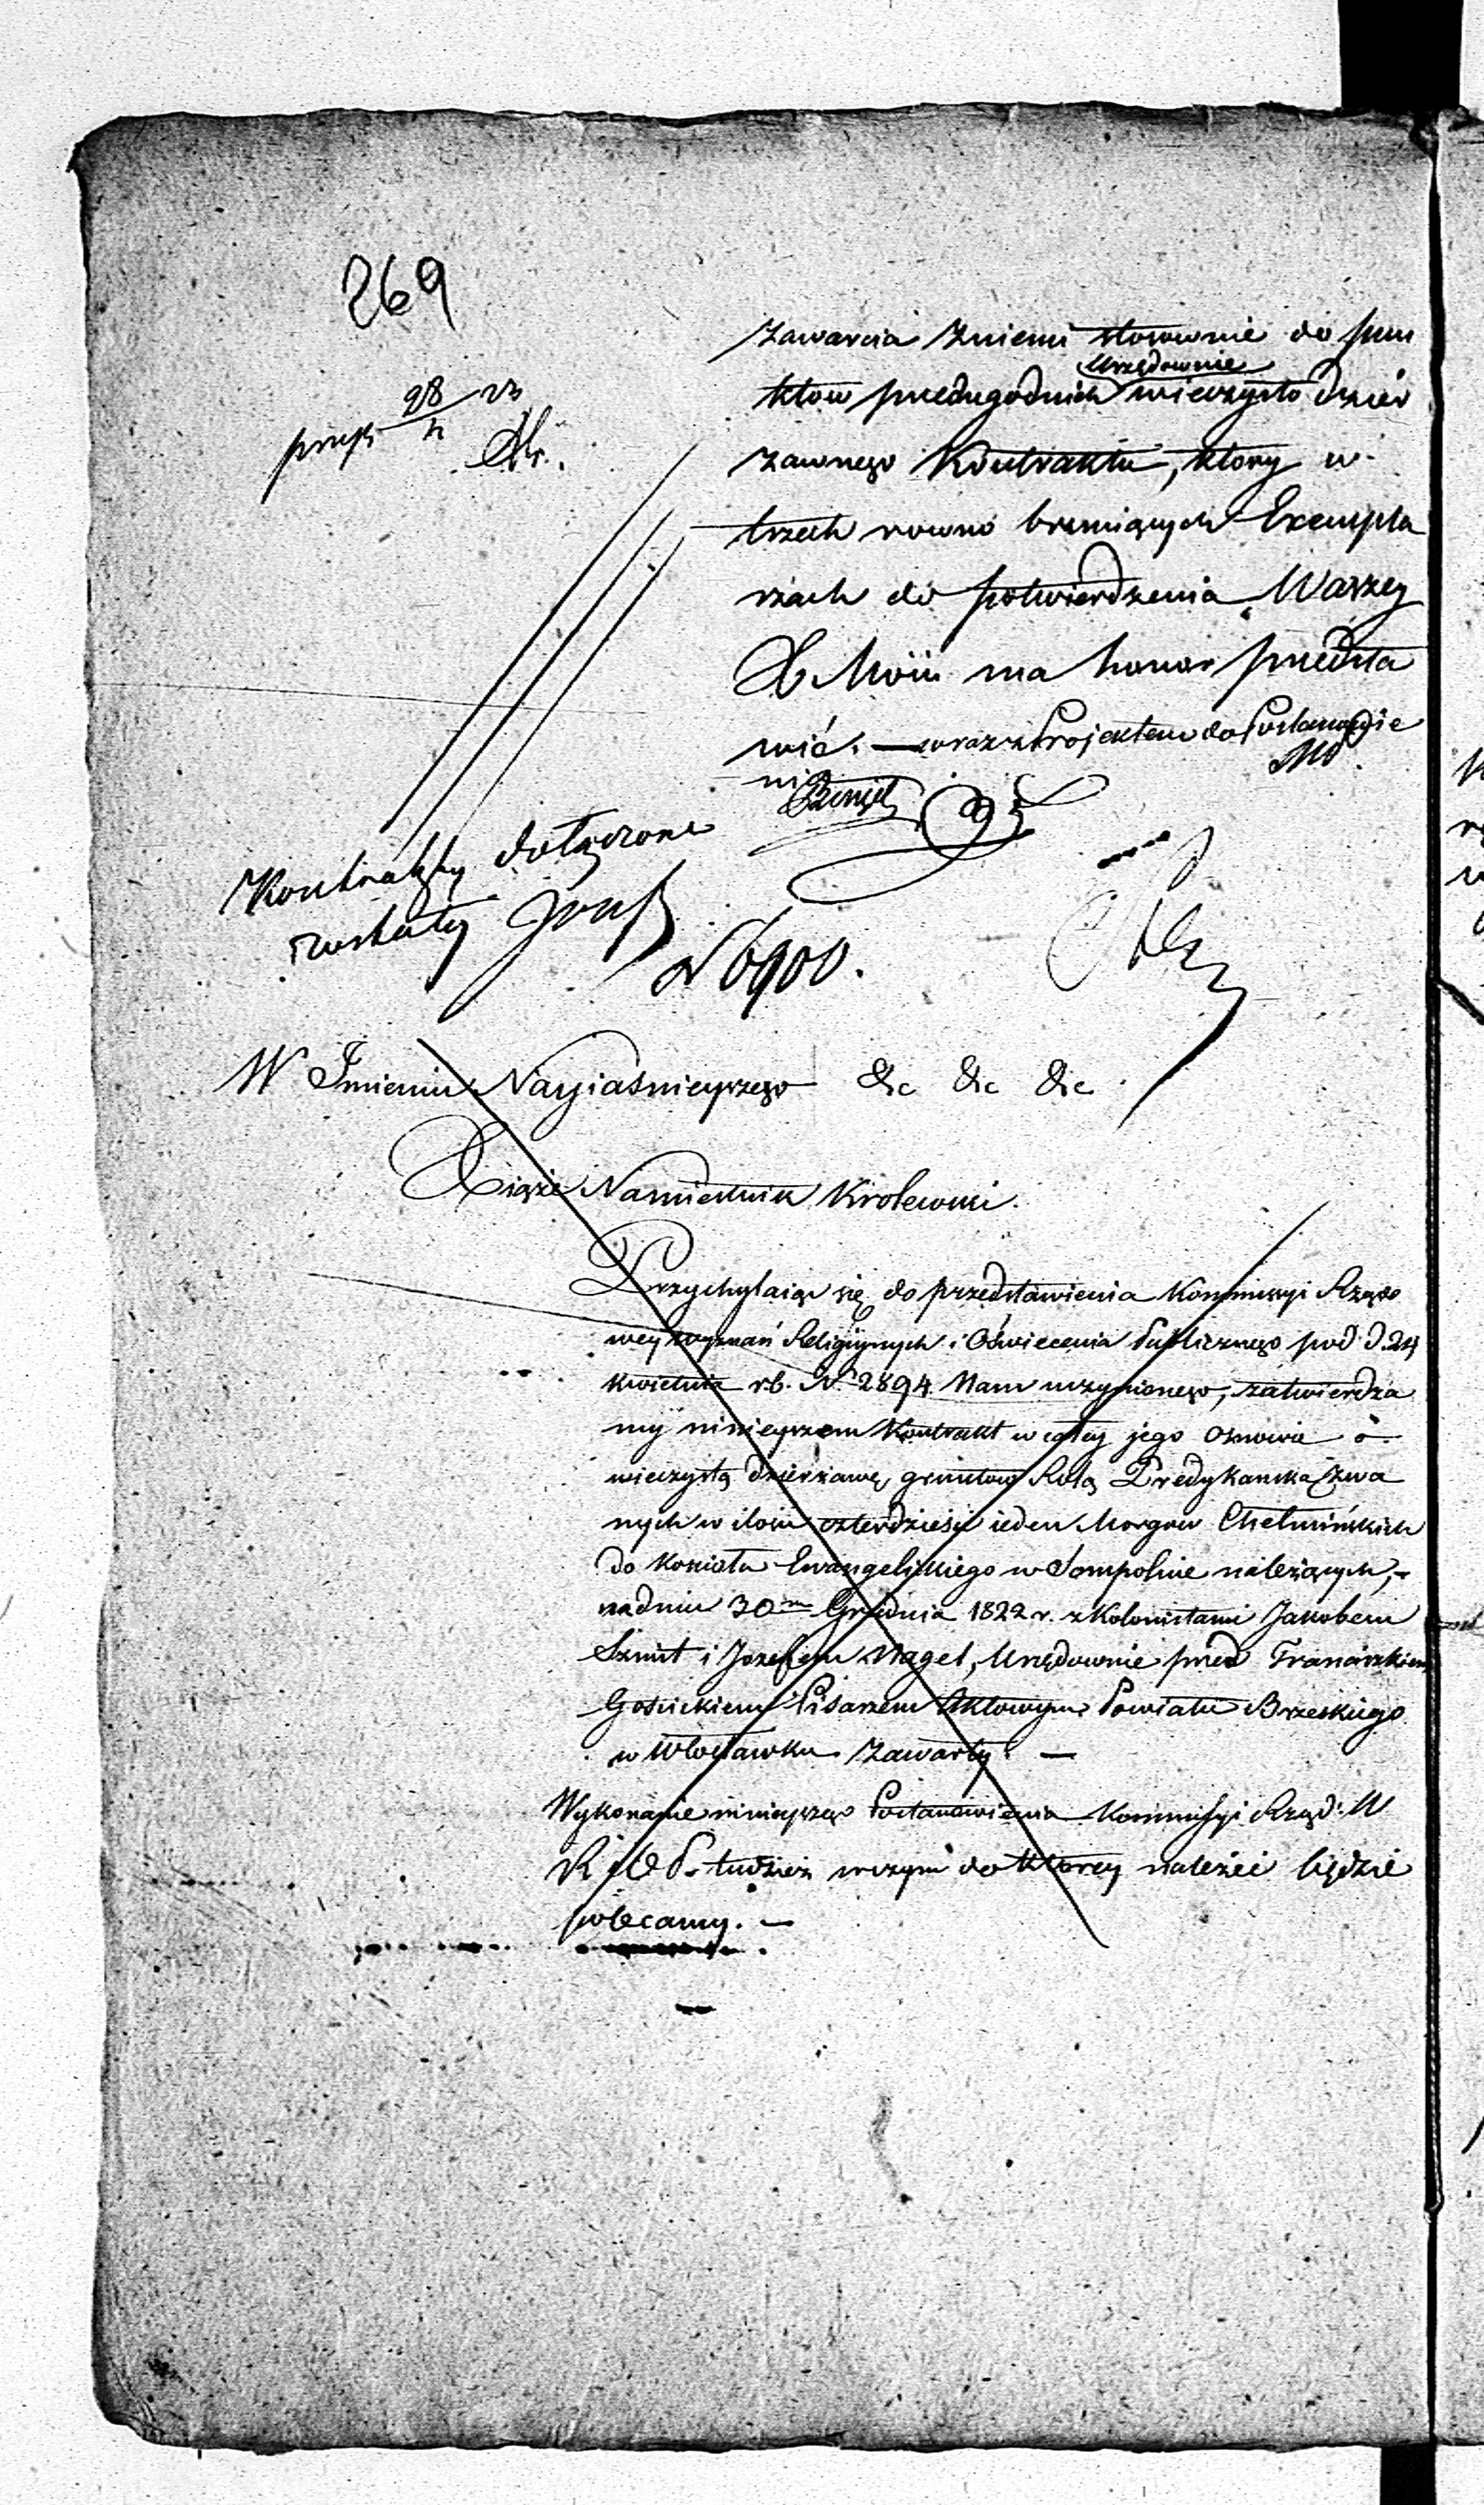 269
zawarcia zniemi stosownie do pun
Urzędownie
ktow przedugodnich wieczysto dzier
zawnego Kontraktu, ktory w
trzech rowno brzmiących Exempla
rzach do potwierdzenia Waszey
X Mości ma honor przedsta
wić. — wraz z Projektem do Postanowie
nia
28 23
Kontrakty dołączone
zostały
N 6900.
W Imieniu Nayiaśnieyszego &c &c &c
Xiąże Namiestnik Krolewski.
Przychylaiąc się do przedstawienia Kommissyi Rządo
wey wyznań Religiynych i Oświecenia Publicznego pod d. 24
kwietnia r.b. N 2894 Nam uczynionego, zatwierdza
my ninieyszem Kontrakt w całey jego osnowie o
wieczystą dzierżawę gruntow Rolą Predykanska zwa
nych w ilości czterdzieści ieden Morgow Chełmińskich
do koscioła Ewangelickiego w Sompolnie należących, -
nadniu 30m Grudnia 1822 r. z Kolonistami Jakobem
Szmit i Jozefem Nagel, Urzędownie przed Franciszkiem
Gościckiem Pisarzem Aktowym Powiatu Brzeskiego
w Włocławku zawarty. —
Wykonanie ninieyszego Postanowienia Kommissyi Rząd: W
R i O P. tudzież wczym do ktorey należeć będzie
polecamy. —